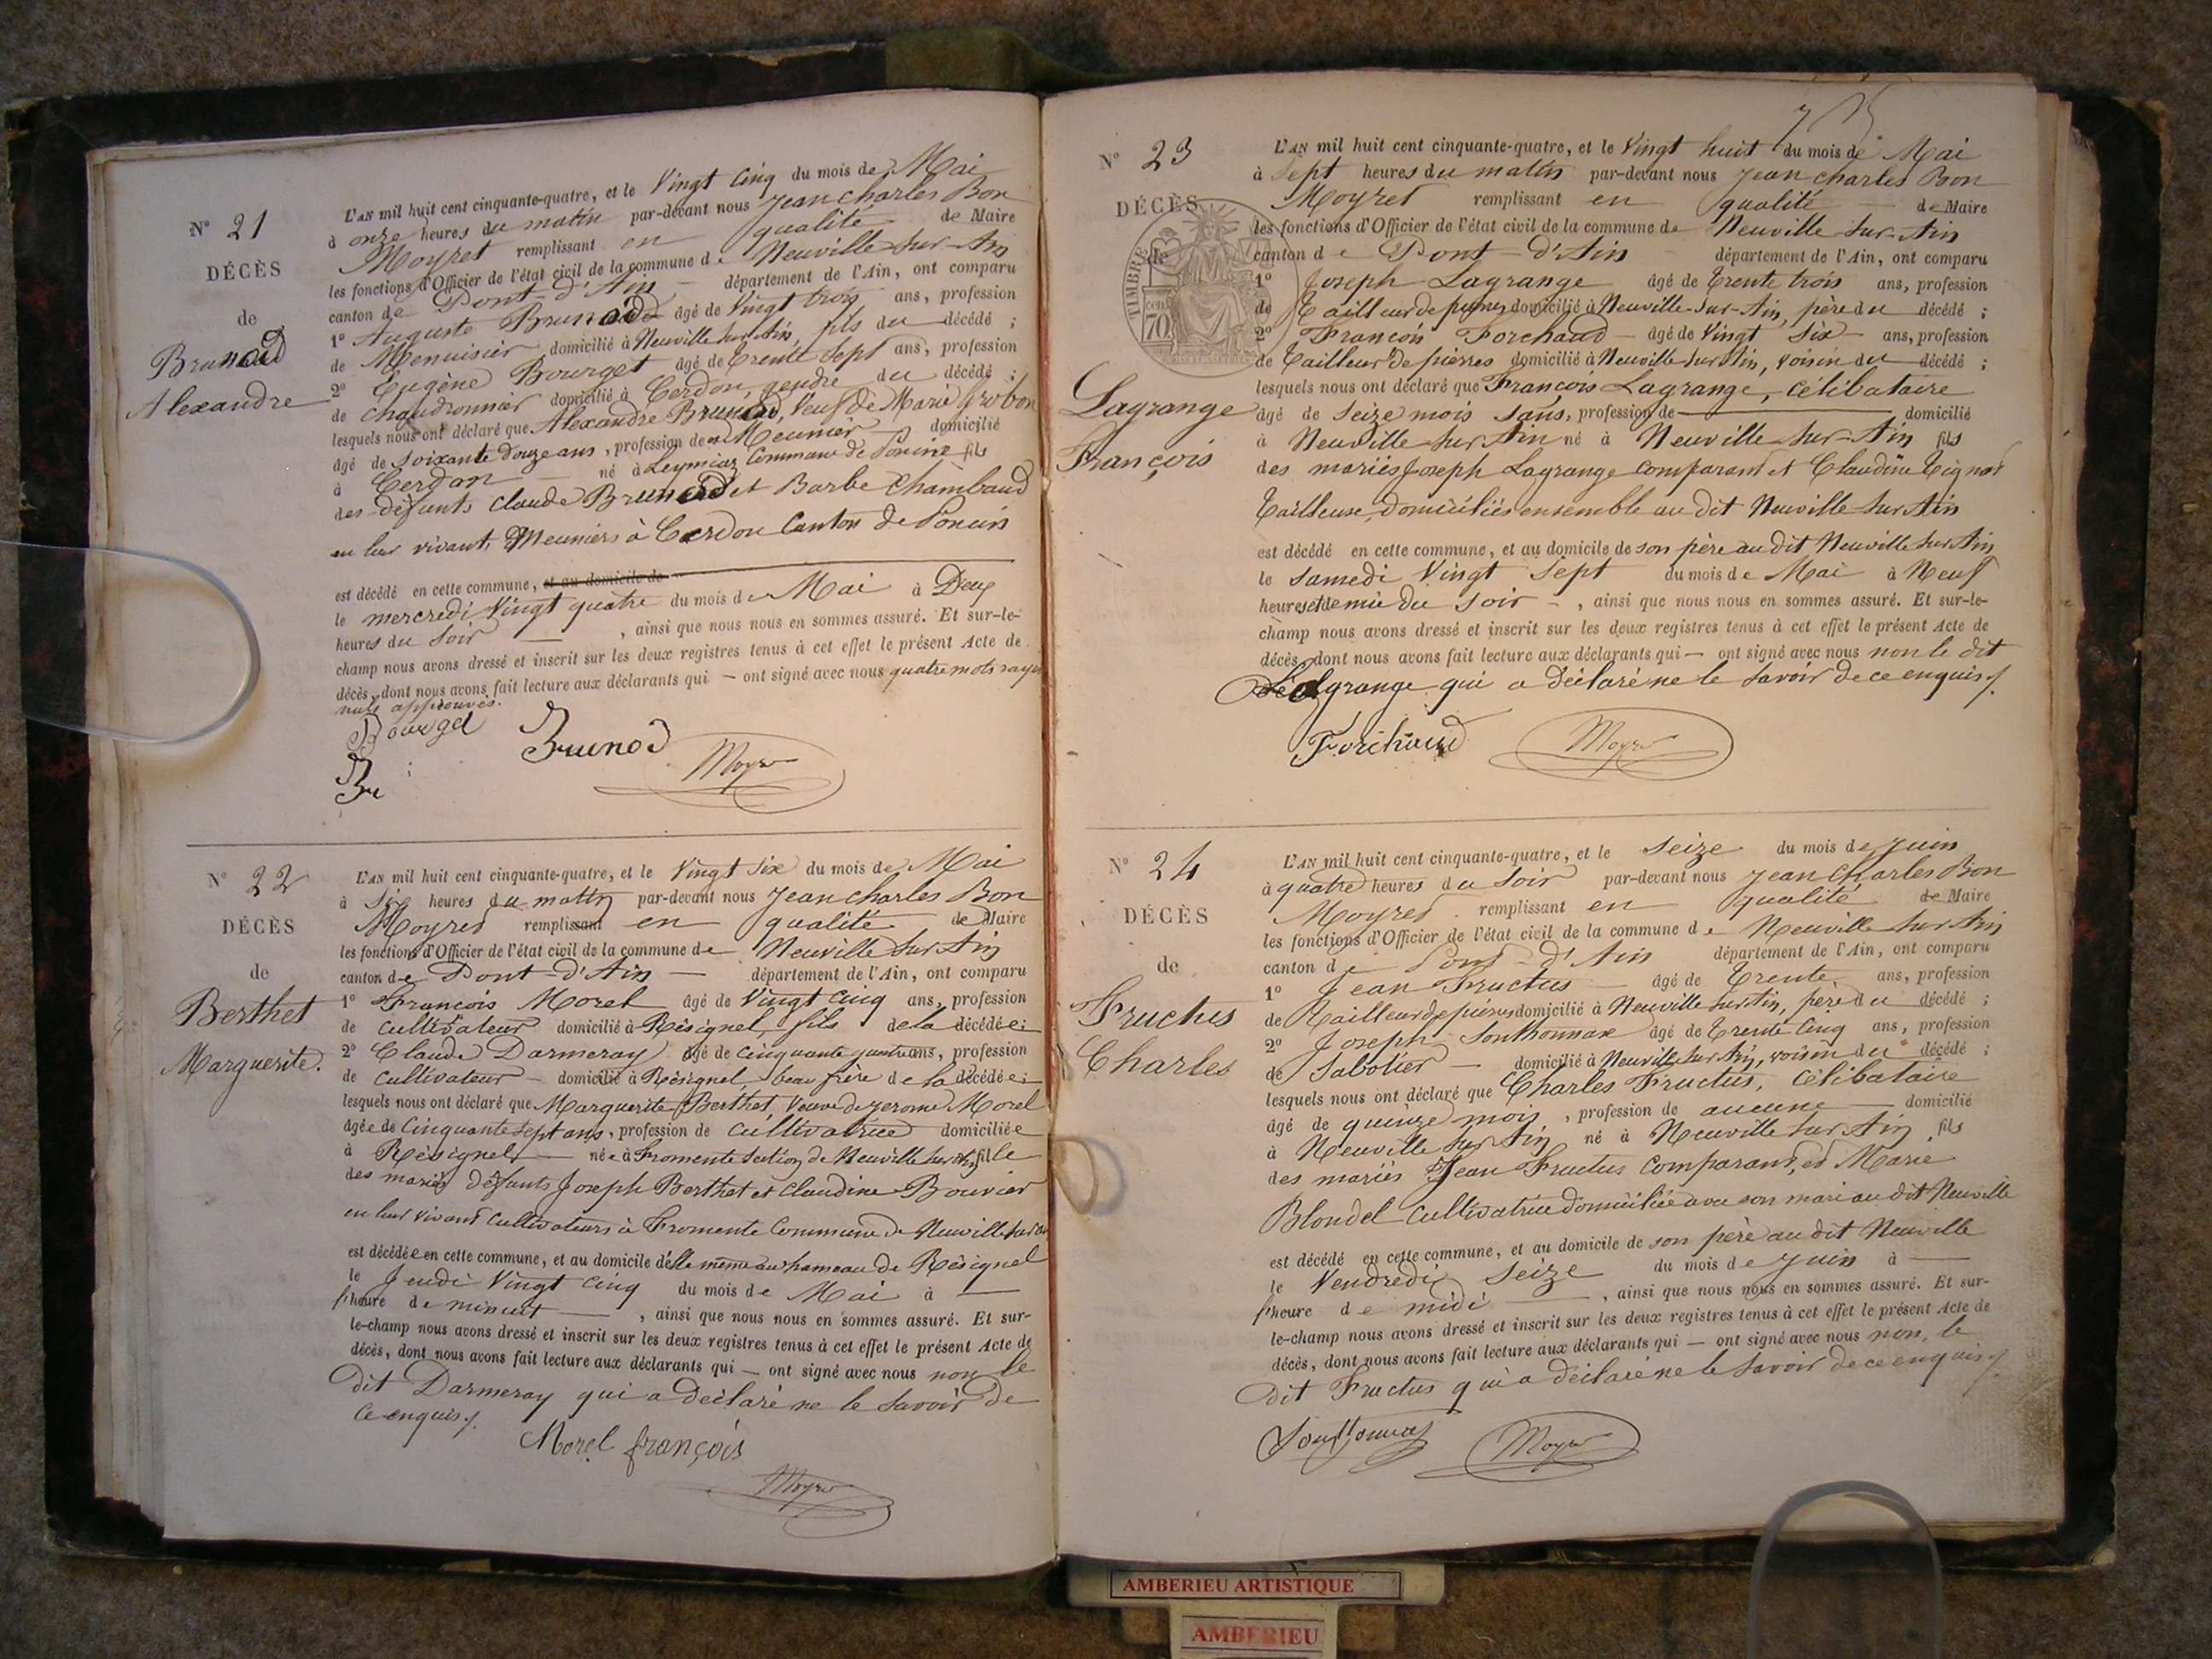 N° 21
DÉCÈS
de
Brunod
Alexandre
L'AN mil huit cent cinquante-quatre, et le Vingt Cinq du mois de Mai
à onze heures du matin par-devant nous Jean Charles Bon
Moyret remplissant en qualité de Maire
les fonctions d'Officier de l'état civil de la commune de Neuville sur Ain
canton de Pont-d'Ain département de l'Ain, ont comparu
1° Auguste Brunod âgé de Vingt trois ans, profession
de Menuisier domicilié à Neuville sur Ain, fils du décédé ;
2° Eugène Bourget âgé de Trente Sept ans, profession
de chaudronnier domicilié à Cerdon, gendre du décédé ;
lesquels nous ont déclaré que Alexandre Brunod, Veuf de Marie
âgé de soixante douze ans, profession de Meunier domicilié
à Cerdon né à Leymiaz Commune de Poncin fils
des défunts Claude Brunod et Barbe Chambaud
en leur vivant, Meuniers à Cerdon Canton de Poncin
est décédé en cette commune, et au domicile de
le mercredi Vingt quatre du mois de Mai à Deux
heures du Soir , ainsi que nous nous en sommes assuré. Et sur-le-
champ nous avons dressé et inscrit sur les deux registres tenus à cet effet le présent Acte de
décès, dont nous avons fait lecture aux déclarants qui — ont signé avec nous quatre mots rayés
nuls approuvés.
Bourget
Brunod
Moyret
Bru
N° 22
DÉCÈS
de
Berthet
Marguerite.
L'AN mil huit cent cinquante-quatre, et le Vingt Six du mois de Mai
à Six heures du matin par-devant nous Jean Charles Bon
Moyret remplissant en qualité de Maire
les fonctions d'Officier de l'état civil de la commune de Neuville sur Ain
canton de Pont-d'Ain département de l'Ain, ont comparu
1° François Morel âgé de Vingt Cinq ans, profession
de cultivateur domicilié à Résignel, fils de la décédée ;
2° Claude Darmeray âgé de cinquante quatre ans, profession
de cultivateur domicilié à Résignel, beau frère de la décédée ;
lesquels nous ont déclaré que Marguerite Berthet, Veuve de Jerome Morel
âgée de Cinquante Sept ans, profession de cultivatrice domiciliée
à Résignel née à Fromente Section de Neuville sur Ain fille
des mariés défunts Joseph Berthet et Claudine Bouvier
en leur vivant Cultivateurs à Fromente Commune de Neuville sur Ain
est décédée en cette commune, et au domicile d'elle même au hameau de Résignel
le Jeudi Vingt Cinq du mois de Mai à —
l'heure de minuit , ainsi que nous nous en sommes assuré. Et sur-
le-champ nous avons dressé et inscrit sur les deux registres tenus à cet effet le présent Acte de
décès, dont nous avons fait lecture aux déclarants qui — ont signé avec nous non le
dit Darmeray qui a déclaré ne le Savoir de
ce enquis
Morel françois
Moyret
N° 23
DÉCÈS
de
Lagrange
François
TIMBRE
70
L'AN mil huit cent cinquante-quatre, et le Vingt huit du mois de Mai
à Sept heures du matin par-devant nous Jean Charles Bon
Moyret remplissant en qualité de Maire
les fonctions d'Officier de l'état civil de la commune de Neuville-Sur-Ain
canton de Pont-d'Ain département de l'Ain, ont comparu
1° Joseph Lagrange âgé de Trente trois ans, profession
de Tailleur de pierres domicilié à Neuville-Sur-Ain, père du décédé ;
2° François Forchaud âgé de Vingt Six ans, profession
de Tailleur de pierres domicilié à Neuville Sur Ain, voisin du décédé ;
lesquels nous ont déclaré que François Lagrange, célibataire
âgé de Seize mois Sans, profession de — domicilié
à Neuville Sur Ain né à Neuville Sur-Ain fils
des mariés Joseph Lagrange comparant et Claudine
Tailleuse, Domiciliés ensemble au dit Neuville Sur Ain
est décédé en cette commune, et au domicile de son père au dit Neuville Sur Ain
le Samedi Vingt Sept du mois de Mai à Neuf
heures et demie du Soir , ainsi que nous nous en sommes assuré. Et sur-le-
champ nous avons dressé et inscrit sur les deux registres tenus à cet effet le présent Acte de
décès, dont nous avons fait lecture aux déclarants qui — ont signé avec nous non le dit
Lagrange qui a déclaré ne le Savoir de ce enquis
Forchaud
Moyret
N° 24
DÉCÈS
de
Fructus
Charles
L'AN mil huit cent cinquante-quatre, et le Seize du mois de Juin
à quatre heures du Soir par-devant nous Jean Charles Bon
Moyret remplissant en qualité de Maire
les fonctions d'Officier de l'état civil de la commune de Neuville Sur Ain
canton de Pont-d'Ain département de l'Ain, ont comparu
1° Jean Fructus âgé de Trente ans, profession
de Tailleur de pierres domicilié à Neuville Sur Ain, père du décédé ;
2° Joseph Sonthonnax âgé de Trente Cinq ans, profession
de Sabotier domicilié à Neuville Sur Ain, voisin du décédé ;
lesquels nous ont déclaré que Charles Fructus, célibataire
âgé de quinze mois, profession de aucune domicilié
à Neuville Sur Ain né à Neuville Sur Ain fils
des mariés Jean Fructus comparant, et Marie
Blondel cultivatrice domiciliée avec son mari au dit Neuville
est décédé en cette commune, et au domicile de son père au dit Neuville
le Vendredi Seize du mois de Juin à —
l'heure de midi , ainsi que nous nous en sommes assuré. Et sur-
le-champ nous avons dressé et inscrit sur les deux registres tenus à cet effet le présent Acte de
décès, dont nous avons fait lecture aux déclarants qui — ont signé avec nous non, le
dit Fructus qui a déclaré ne le Savoir de ce enquis
Sonthonnax
Moyret
AMBERIEU ARTISTIQUE
AMBERIEU